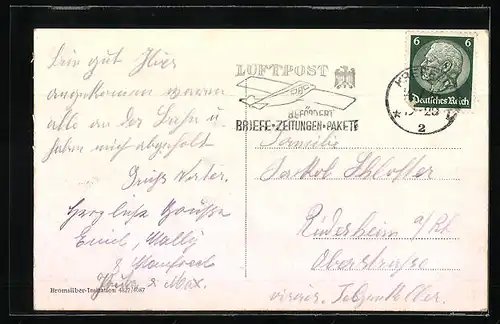 Bin gut Hier
angekommen waren
alle an der Bahn u
haben mich abgeholt
Gruß Vater.
Herzliche Grüsse
Emil, Wally
& Manfred
& Max.
Bromsilber-Imitation
LUFTPOST
BEFÖRDERT
BRIEFE·ZEITUNGEN·PAKETE
6 6
Deutsches Reich
2
Familie
Jakob Schloster
Rüdesheim a/Rh
Oberstraße